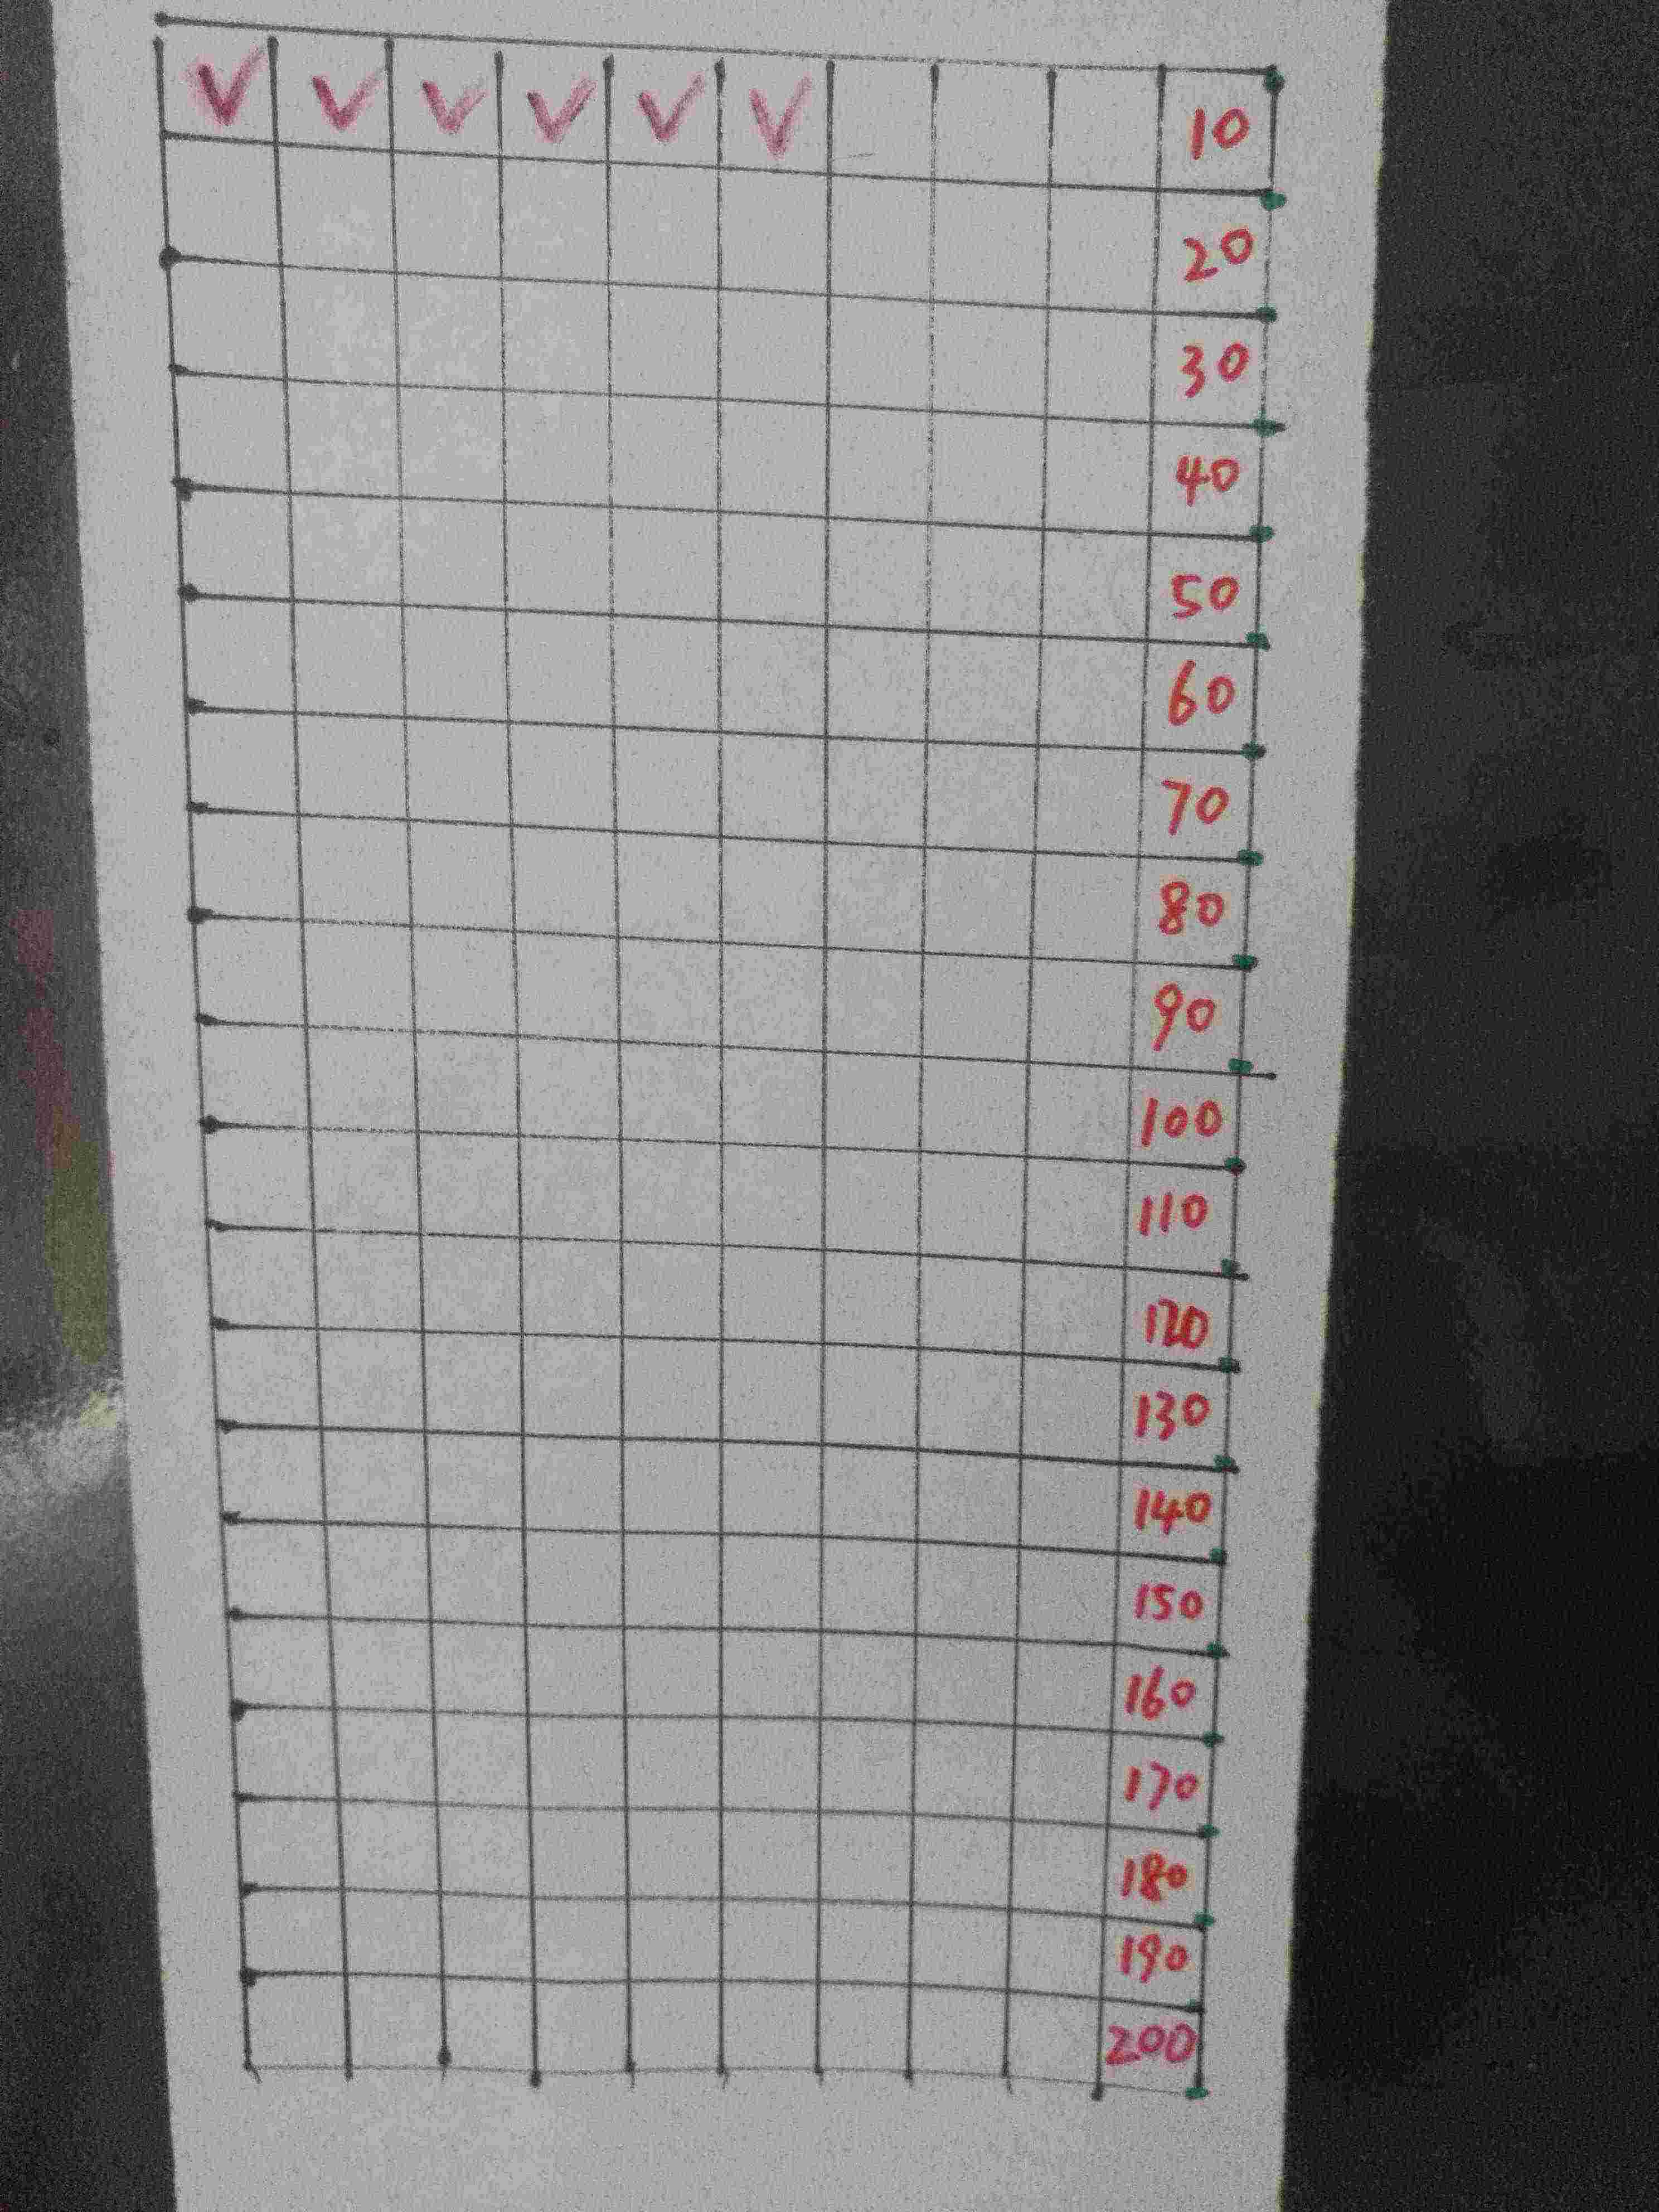 V V V V V V 10
20
30
40
50
60
70
80
90
100
110
120
130
140
150
160
170
180
190
200